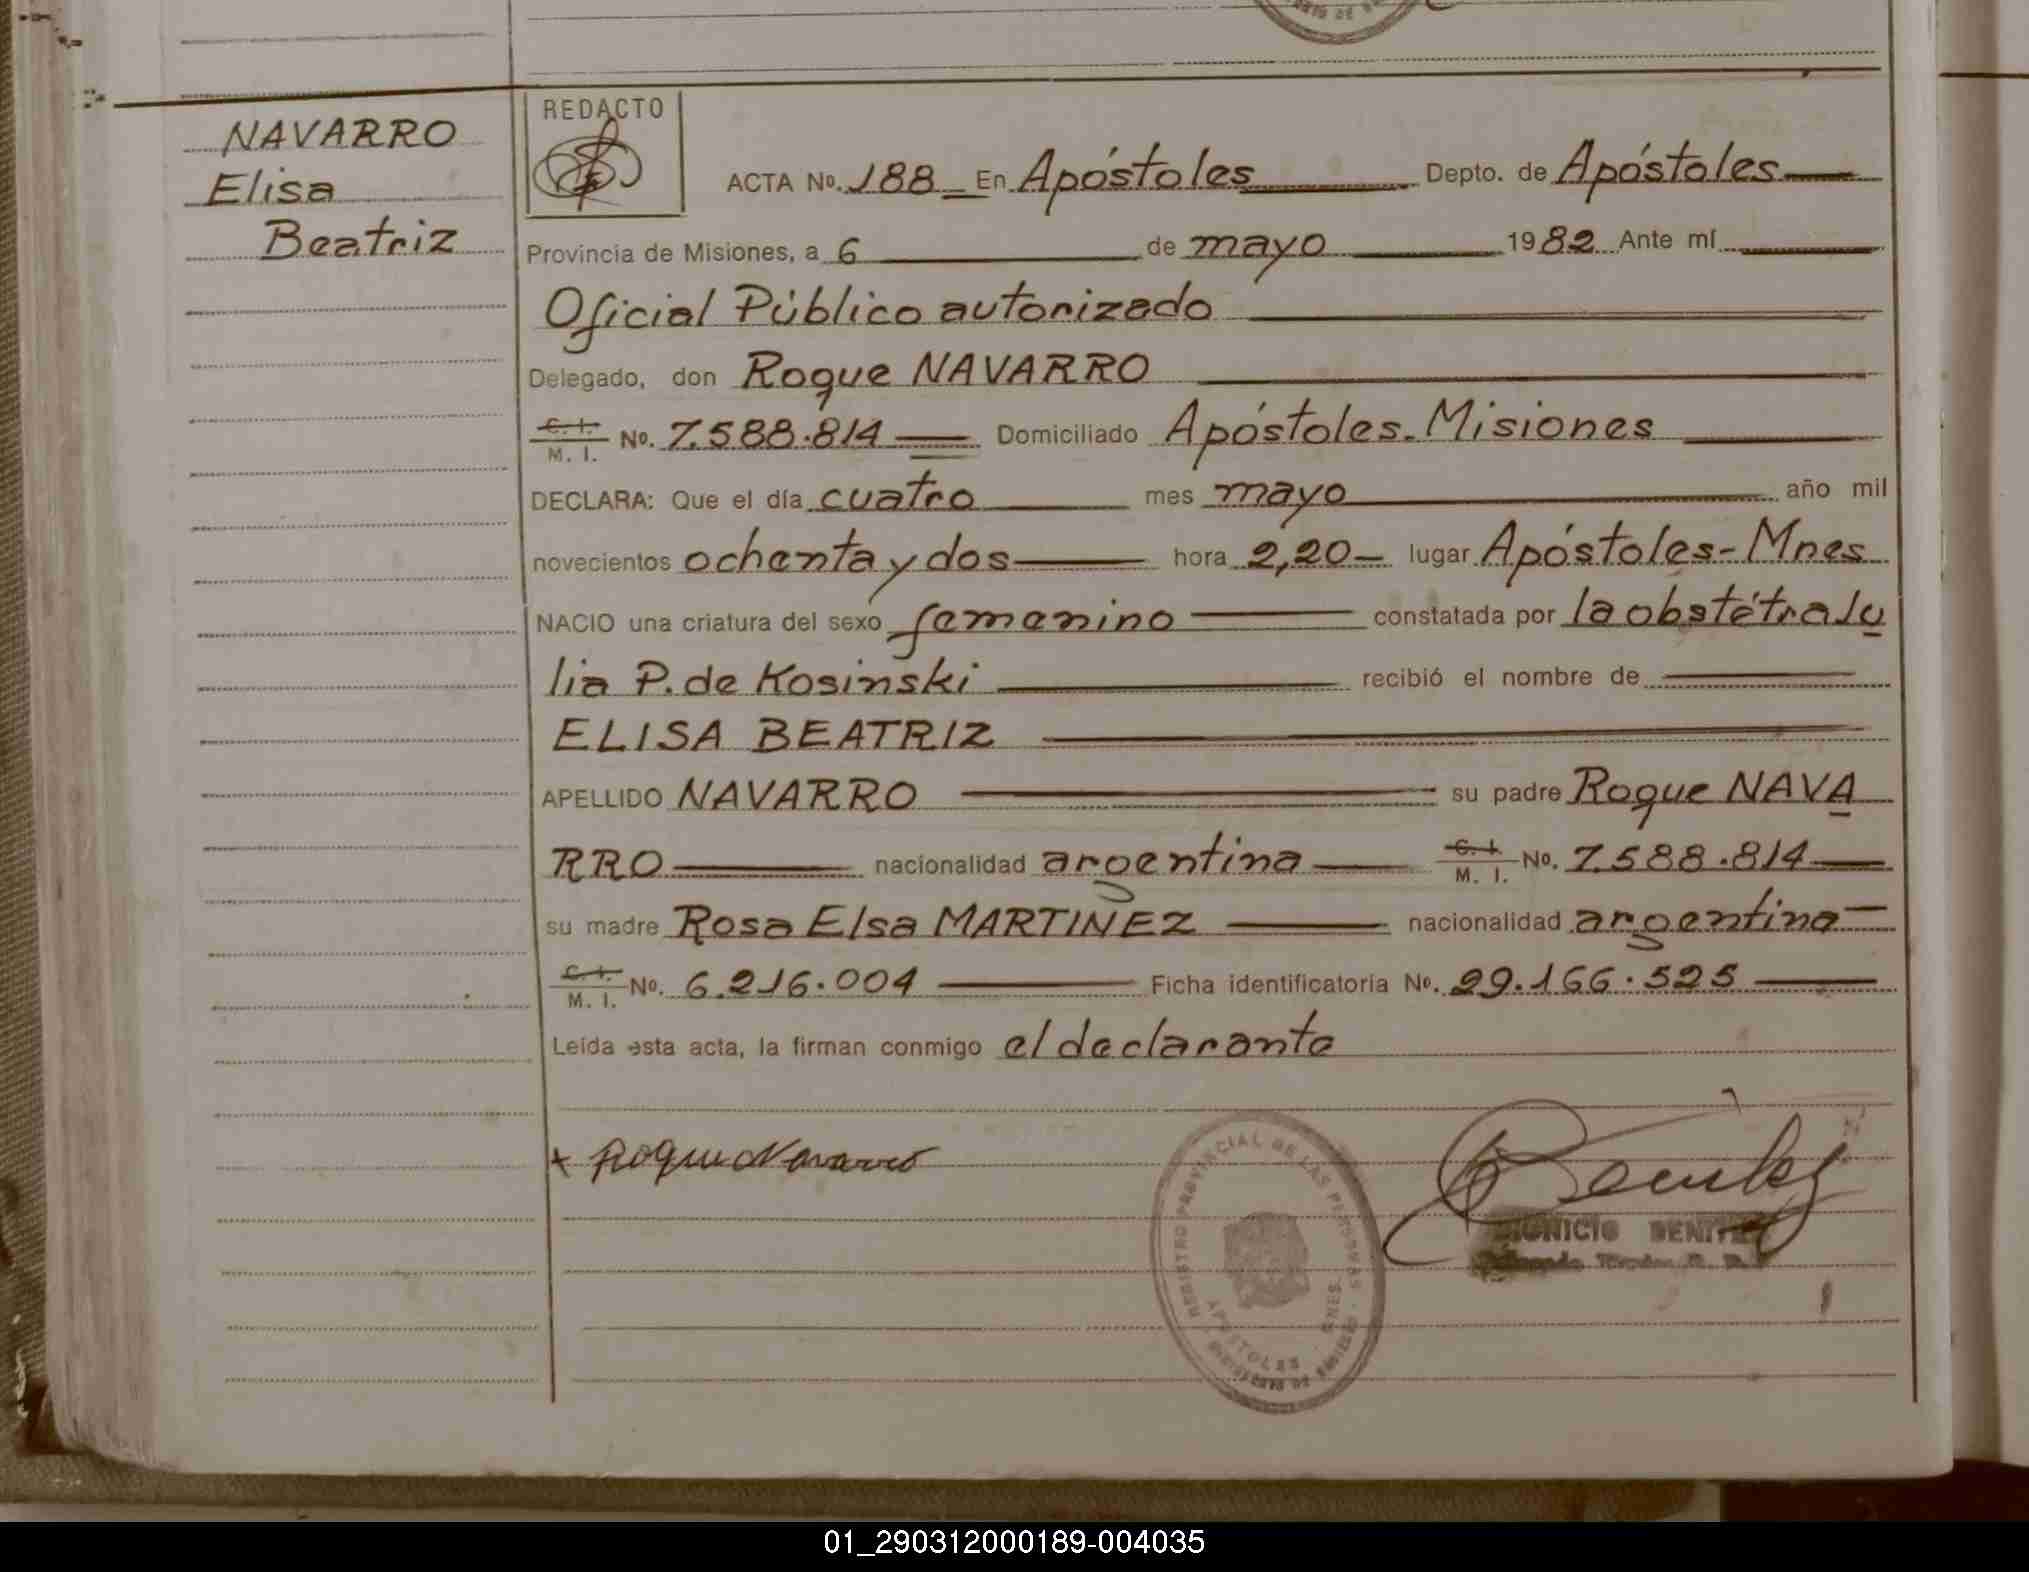 NAVARRO
Elisa
Beatriz
REDACTO
ACTA No. 188 En Apóstoles Depto. de Apóstoles
Provincia de Misiones, a 6 de mayo 1982 Ante mí
Oficial Público autorizado
Delegado, don Roque NAVARRO
C. I. M. I. No. 7.588.814 Domiciliado Apóstoles. Misiones
DECLARA: Que el día cuatro mes mayo año mil
novecientos ochenta y dos hora 2,20 lugar Apóstoles-Mnes
NACIO una criatura del sexo femenino constatada por la obstétra Ju
lia P. de Kosinski recibió el nombre de
ELISA BEATRIZ
APELLIDO NAVARRO su padre Roque NAVA
RRO nacionalidad argentina C. I. M. I. No. 7.588.814
su madre Rosa Elsa MARTINEZ nacionalidad argentina
C. I. M. I. No. 6.216.004 Ficha identificatoria No. 29.166.525
Leída esta acta, la firman conmigo el declarante
x Roque Navarro
REGISTRO PROVINCIAL DE LAS PERSONAS
APOSTOLES
MNES.
01_290312000189-004035